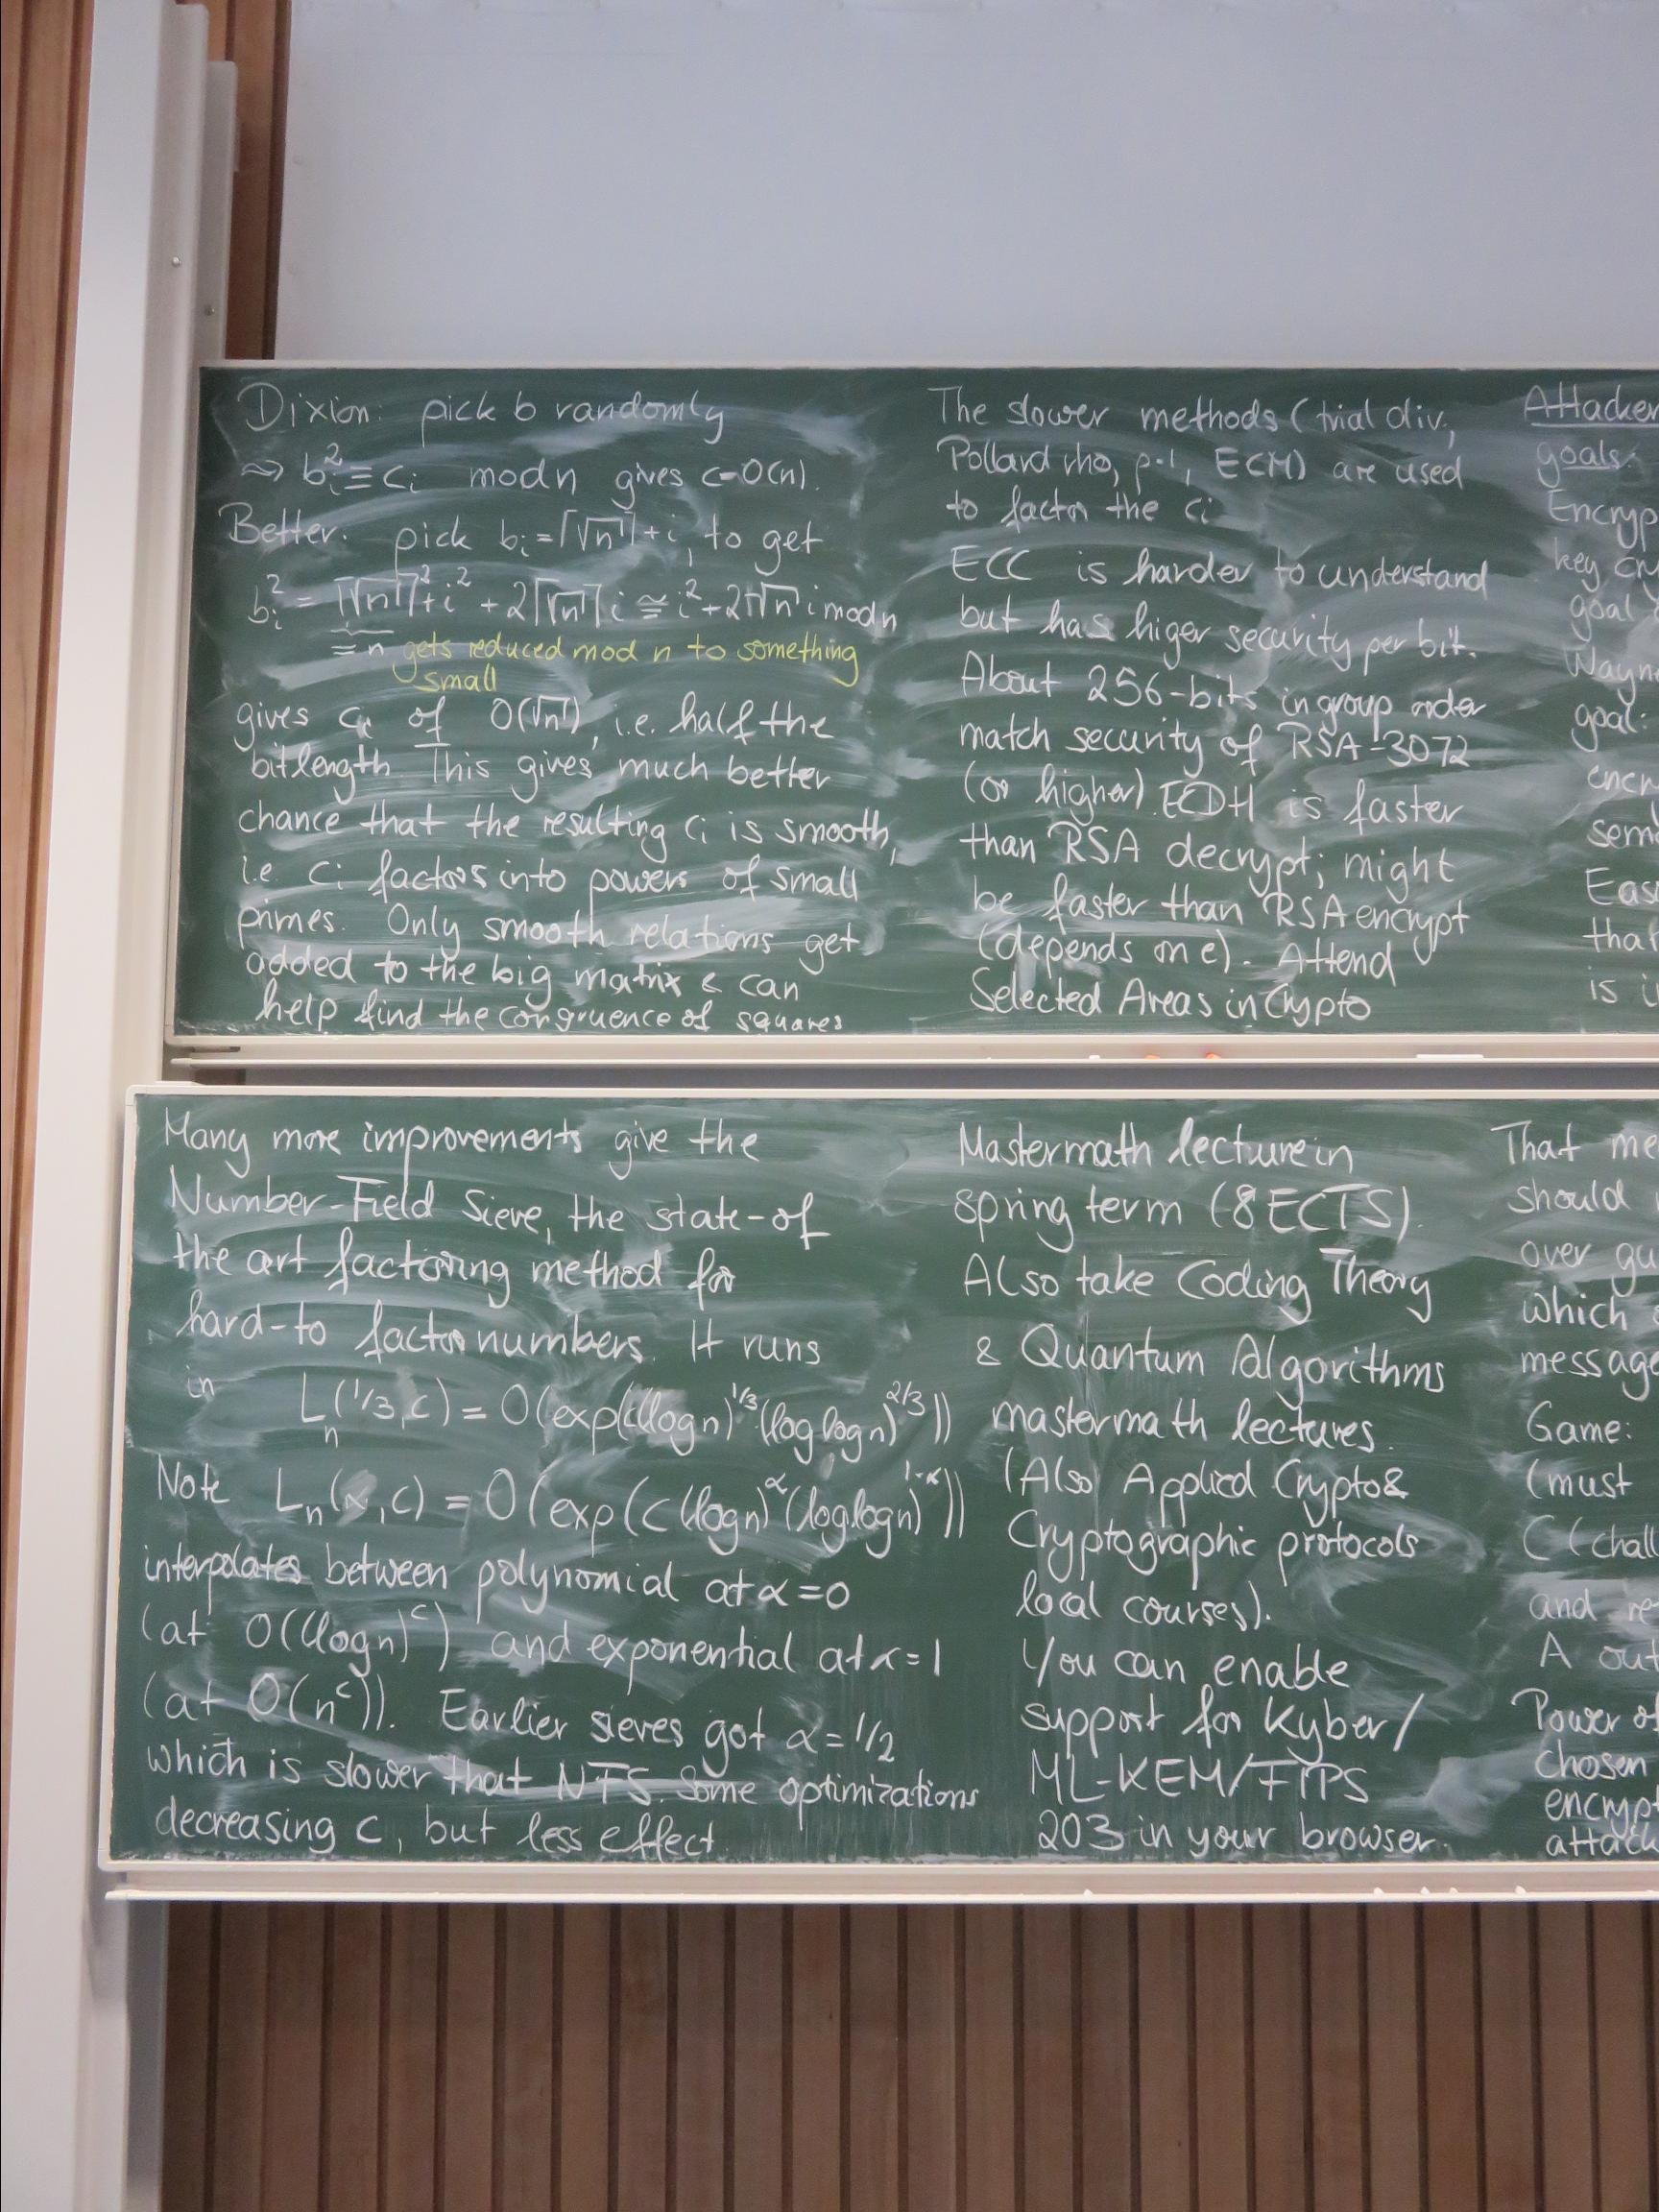 Dixion: pick b randomly
⇝ b_i² ≡ c_i mod n gives c=O(n).
Better: pick b_i = ⌈√n⌉+i, to get
b_i² = ⌈√n⌉²+i² + 2⌈√n⌉i ≅ i²+2⌈√n⌉i mod n
≅n gets reduced mod n to something
small
gives c_i of O(√n), i.e. half the
bitlength. This gives much better
chance that the resulting c_i is smooth,
i.e. c_i factors into powers of small
primes. Only smooth relations get
added to the big matrix & can
help find the congruence of squares
The slower methods (trial div.,
Pollard rho, p-1, ECM) are used
to factor the c_i
ECC is harder to understand
but has higer security per bit.
About 256-bits in group order
match security of RSA-3072
(or higher). ECDH is faster
than RSA decrypt; might
be faster than RSA encrypt
(depends on e). Attend
Selected Areas in Crypto
Attacker
goals:
Encryp
key
goal
Wayne
goal:
encr
sem
Eas
that
is i
Many more improvements give the
Number-Field Sieve, the state-of
the art factoring method for
hard-to factor numbers. It runs
in
L_n(1/3,c) = O(exp(c(log n)^1/3 (log log n)^2/3))
Note L_n(α,c) = O(exp(c(log n)^α (log log n)^1-α))
interpolates between polynomial at α=0
(at O((log n)^c) and exponential at α=1
(at O(n^c)). Earlier sieves got α=1/2
which is slower that NFS. Some optimizations
decreasing c, but less effect.
Mastermath lecture in
spring term (8 ECTS).
Also take Coding Theory
& Quantum Algorithms
mastermath lectures.
(Also Applied Crypto &
Cryptographic protocols
local courses).
You can enable
support for Kyber/
ML-KEM/FIPS
203 in your browser.
That me
should
over gu
which
message
Game:
(must
C (chall
and re
A out
Power of
chosen
encryp
attack